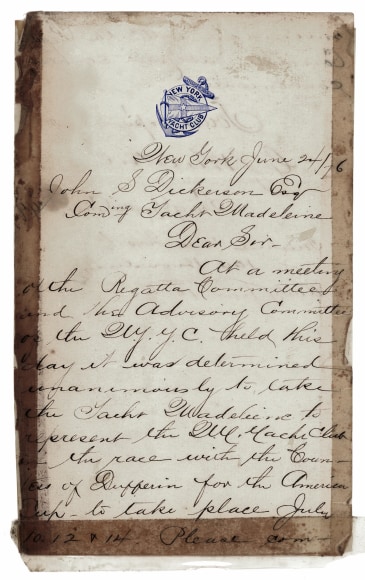 NEW YORK
YACHT CLUB
New York June 24/76
John S Dickerson Esq
Comding Yacht Madeleine
Dear Sir-
At a meeting
of the Regatta Committee
and the Advisory Committee
of the N.Y.Y.C. held this
day it was determined
unanimously to take
the Yacht Madeleine to
represent the N.Y. Yacht Club
in the race with the Coun-
ess of Dufferin for the America
Cup - to take place July
10, 12 & 14 Please com-